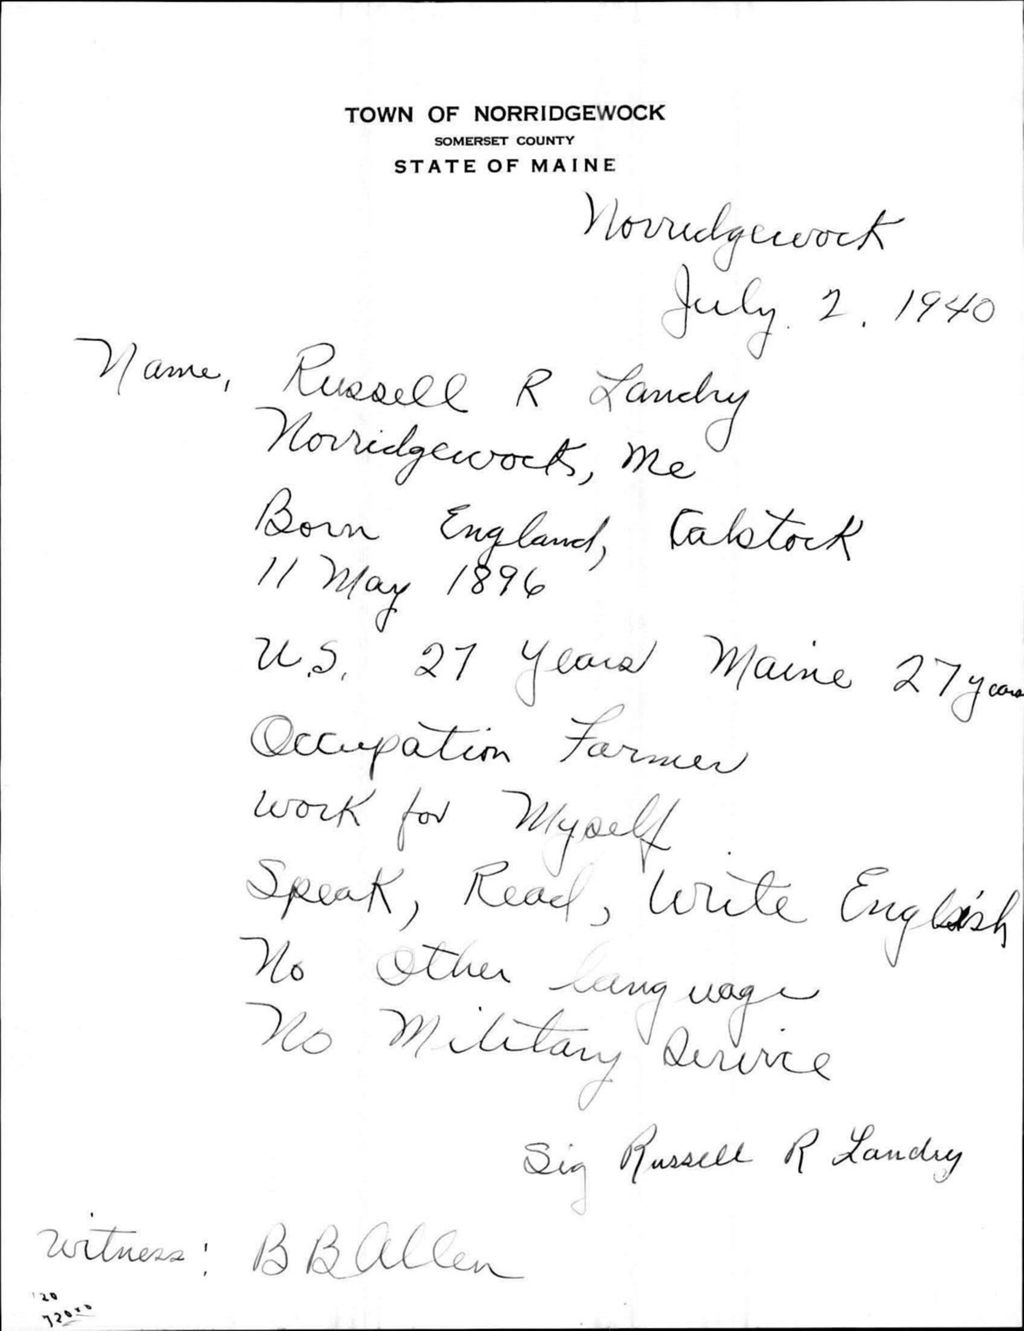 TOWN OF NORRIDGEWOCK
SOMERSET COUNTY
STATE OF MAINE
Norridgewock
July. 2. 1940
Name, Russell R Landry
Norridgewock, Me
Born England,
11 May 1896
U.S. 27 years Maine 27 years
Occupation Farmer
work for Myself
Speak, Read, Write English
No other language
No Military Service
Sig Russell R Landry
Witness: B B Allen